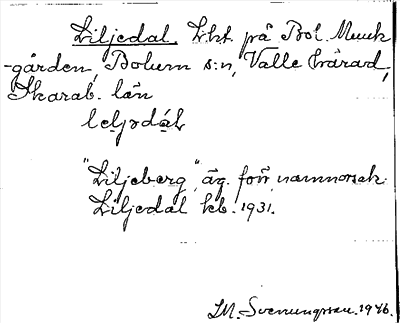 Liljedal. Lht. på Bol. Munk
-gården, Bolum s:n, Valle härad,
Skarab. län
"Liljeberg", äg. förr namnorsak.
Liljedal kb. 1931.
S.M. Svenungsson. 1946.